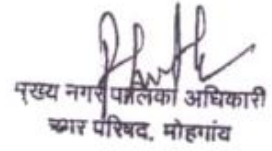 मुख्य नगर पालिका अधिकारी
नगर परिषद, मोहगांव